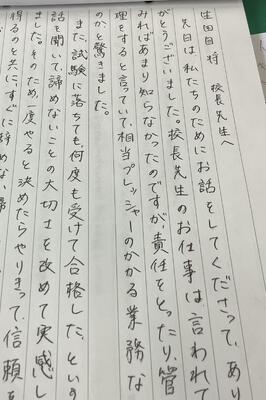 生田目将 校長先生へ
先日は私たちのためにお話をしてくださって、あり
がとうございました。校長先生のお仕事は言われて
みればあまり知らなかったのですが、責任をとったり、管
理をすると言っていて、相当プレッシャーのかかる業務な
のかと驚きました。
また、試験に落ちても、何度も受けて合格した、という
話を聞いて、諦めないことの大切さを改めて実感し
ました。そのため、一度やると決めたらやりきって、信頼を
得るのと共に、すぐに辞めない